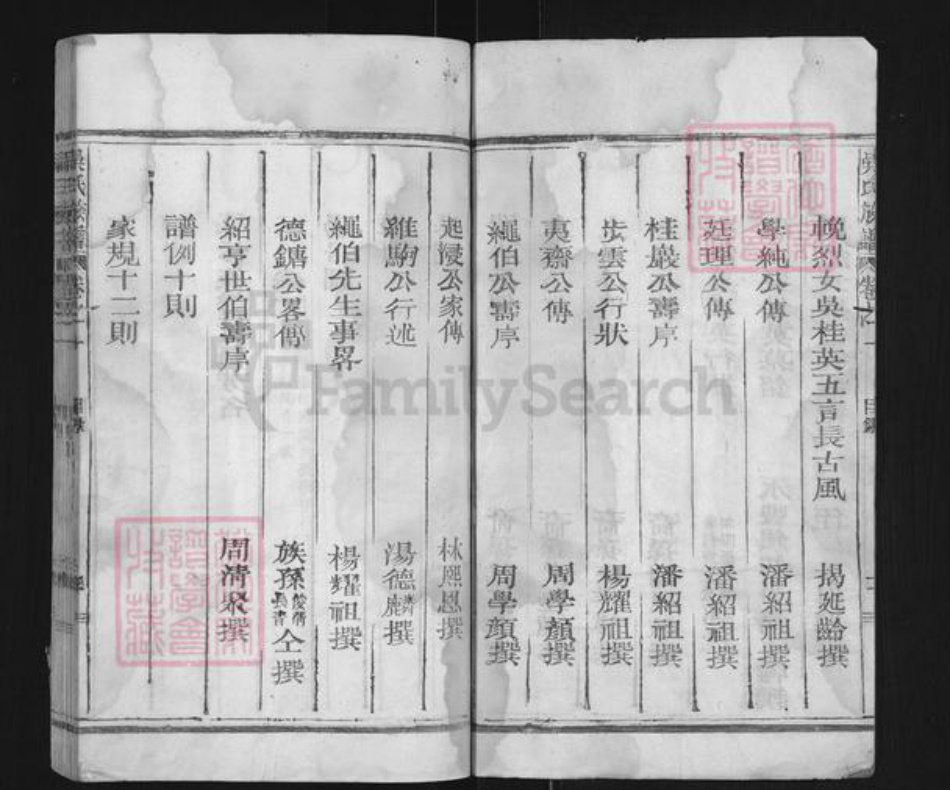 晚烈女吳桂英五言長古風 揭延齡撰
學純公傳 潘紹祖撰
廷理公傳 潘紹祖撰
桂巖公壽序 潘紹祖撰
步雲公行狀 楊耀祖撰
夷齋公傳 周學顏撰
繩伯公壽序 周學顏撰
起浸公家傳 林熙恩撰
維駒公行述 湯德麟撰
繩伯先生事畧 楊耀祖撰
德鏞公畧傳 族孫仝撰
紹亨世伯壽序 周清泉撰
譜例十則
家規十二則
吳氏族譜 卷 目錄
FamilySearch